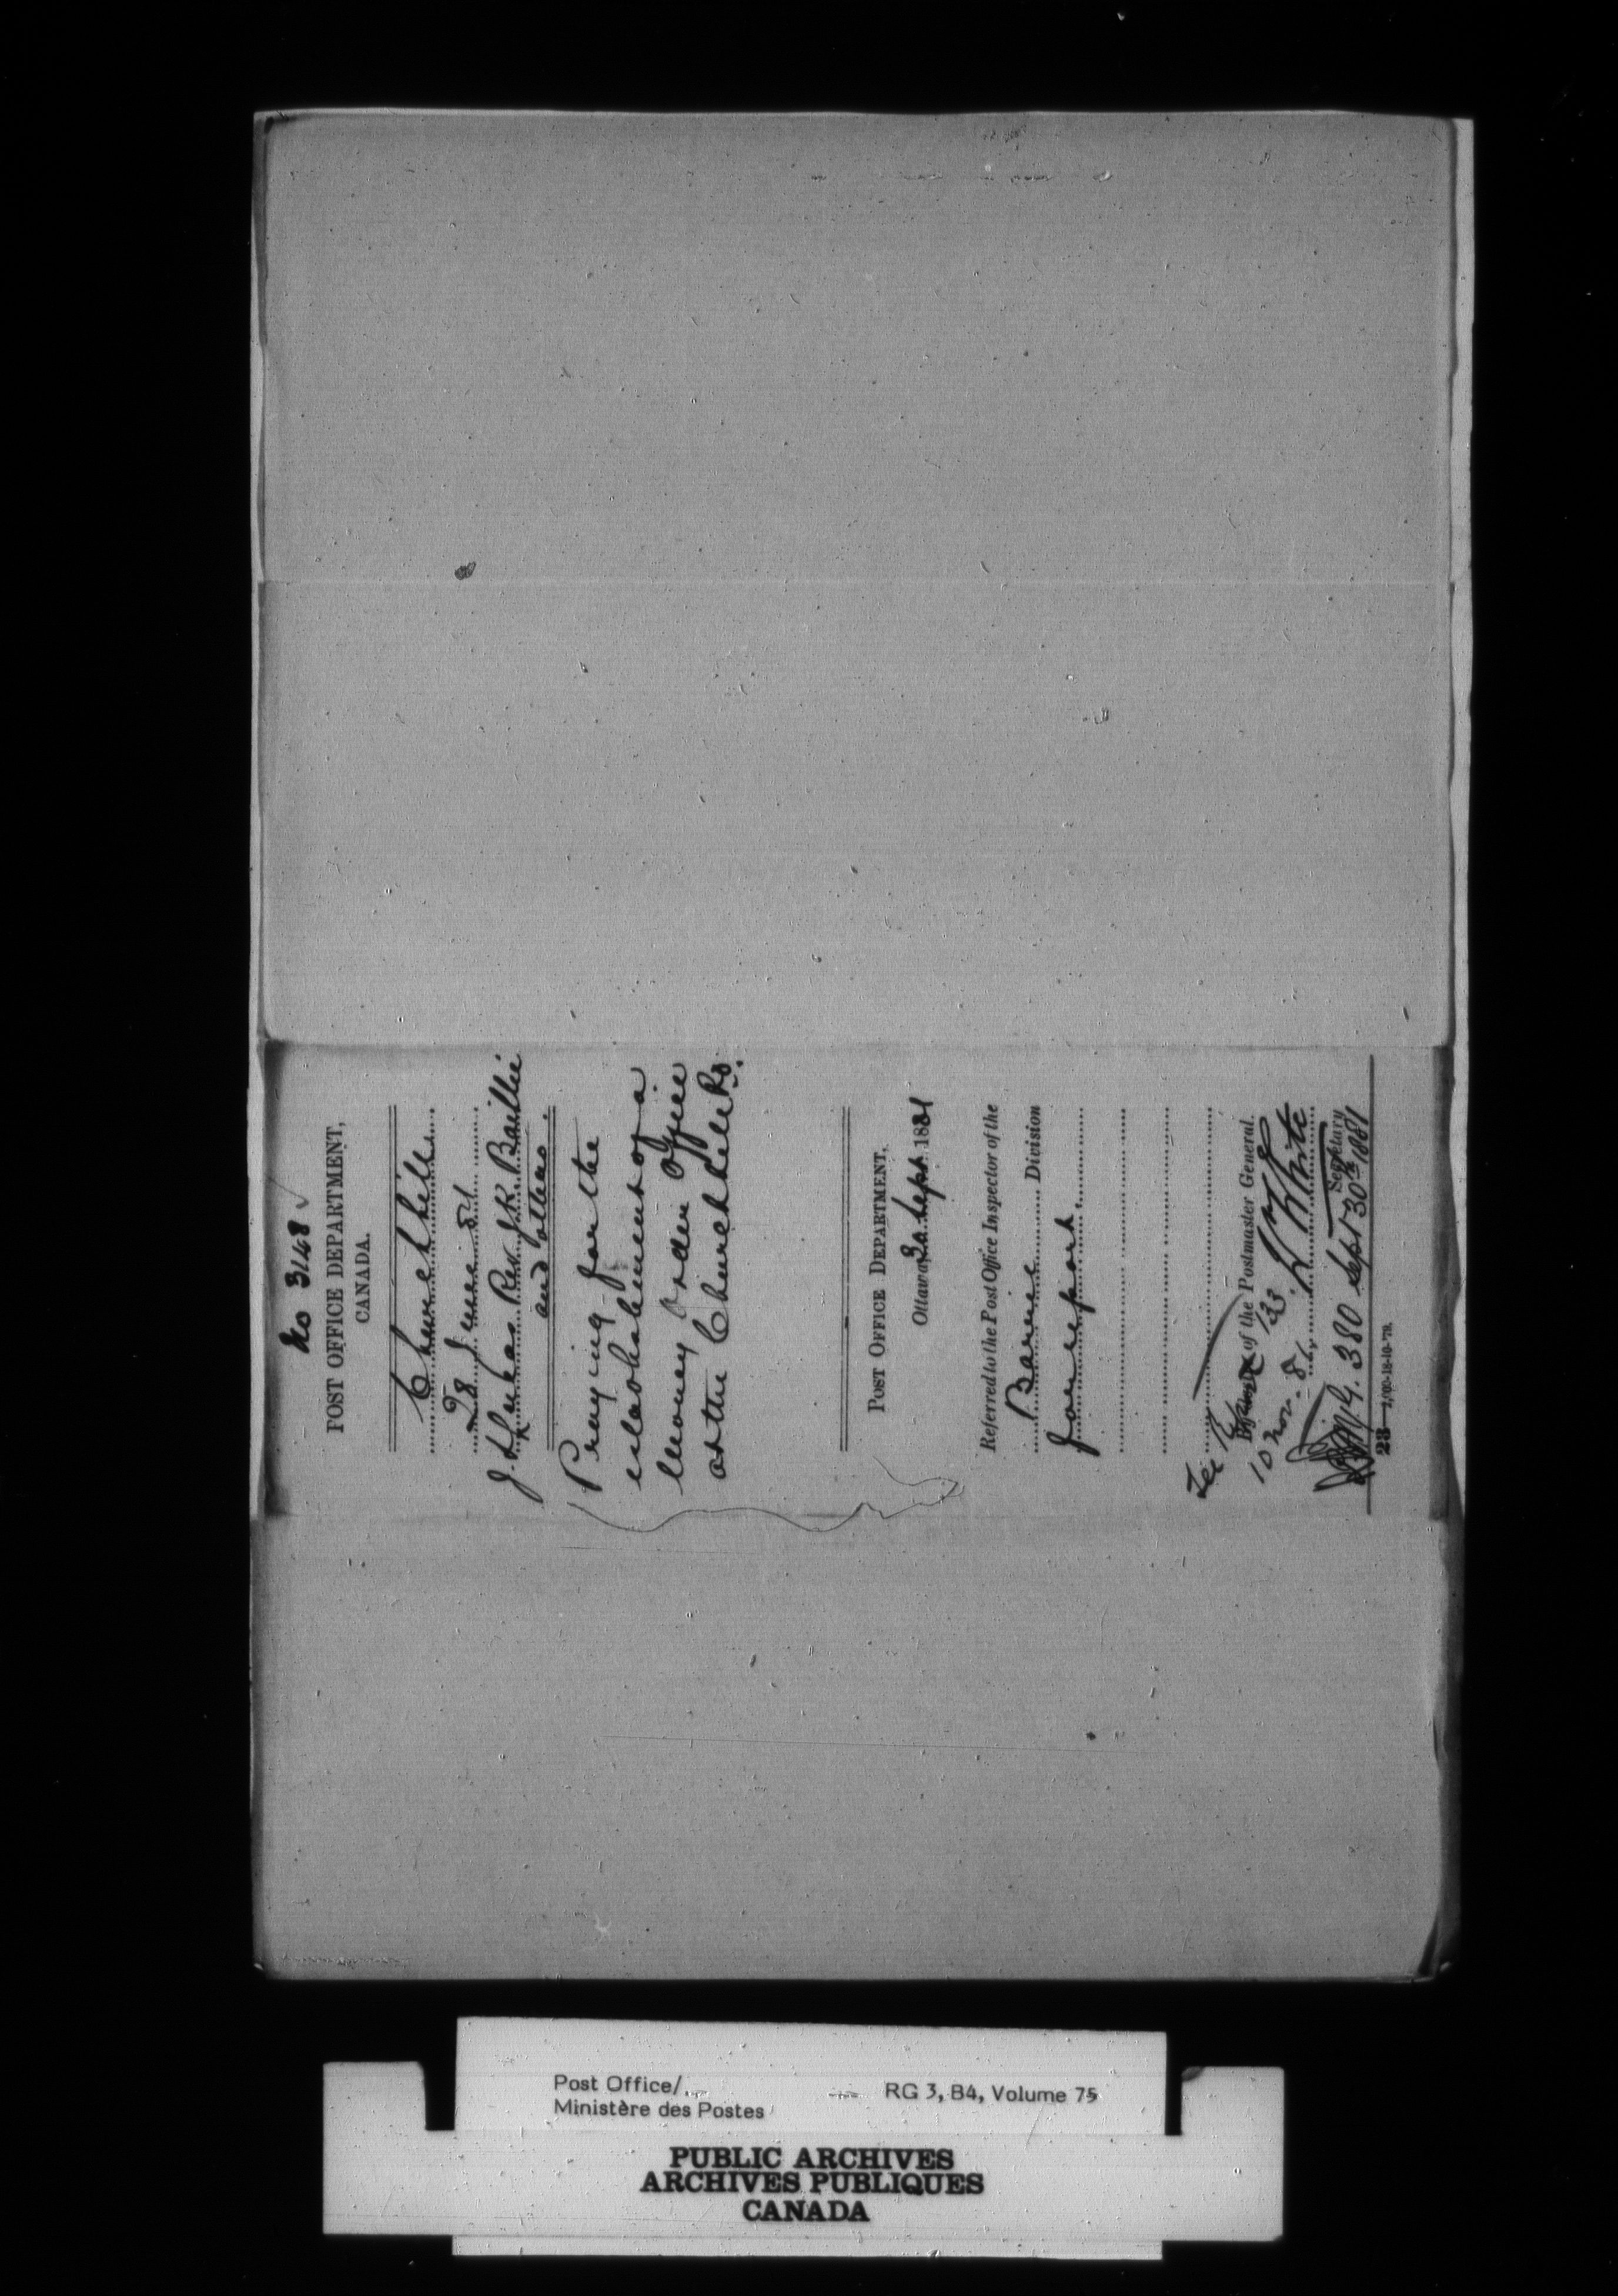 No 3148
POST OFFICE DEPARTMENT,
CANADA.
Churchhill
28 June 81
Rev. J. R. Baillie
and others.
Praying for the
establishment of a
Money Order Office
at the Churchhill P.O.
POST OFFICE DEPARTMENT,
Ottawa, 30 Sept. 1881
Referred to the Post Office Inspector of the
Barrie Division
for report.
of the Postmaster General.
10 Nov. 81
White
Secretary
380 Sept 30th 1881
23
Post Office/
Ministère des Postes
RG 3, B4, Volume 75
PUBLIC ARCHIVES
ARCHIVES PUBLIQUES
CANADA